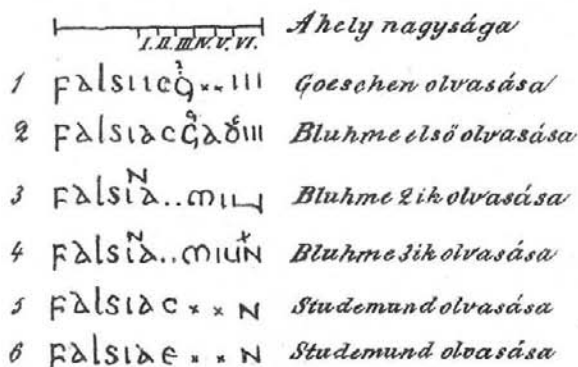 A hely nagysága
I. II. III. IV. V. VI.
1 FalsiicG×× III Goeschen olvasása
2 FalsiacGaδIII Bluhme első olvasása
3 Falsia..miu Bluhme 2ik olvasása
4 Falsia..miuN Bluhme 3ik olvasása
5 Falsiac × × N Studemund olvasása
6 Falsiae × × N Studemund olvasása